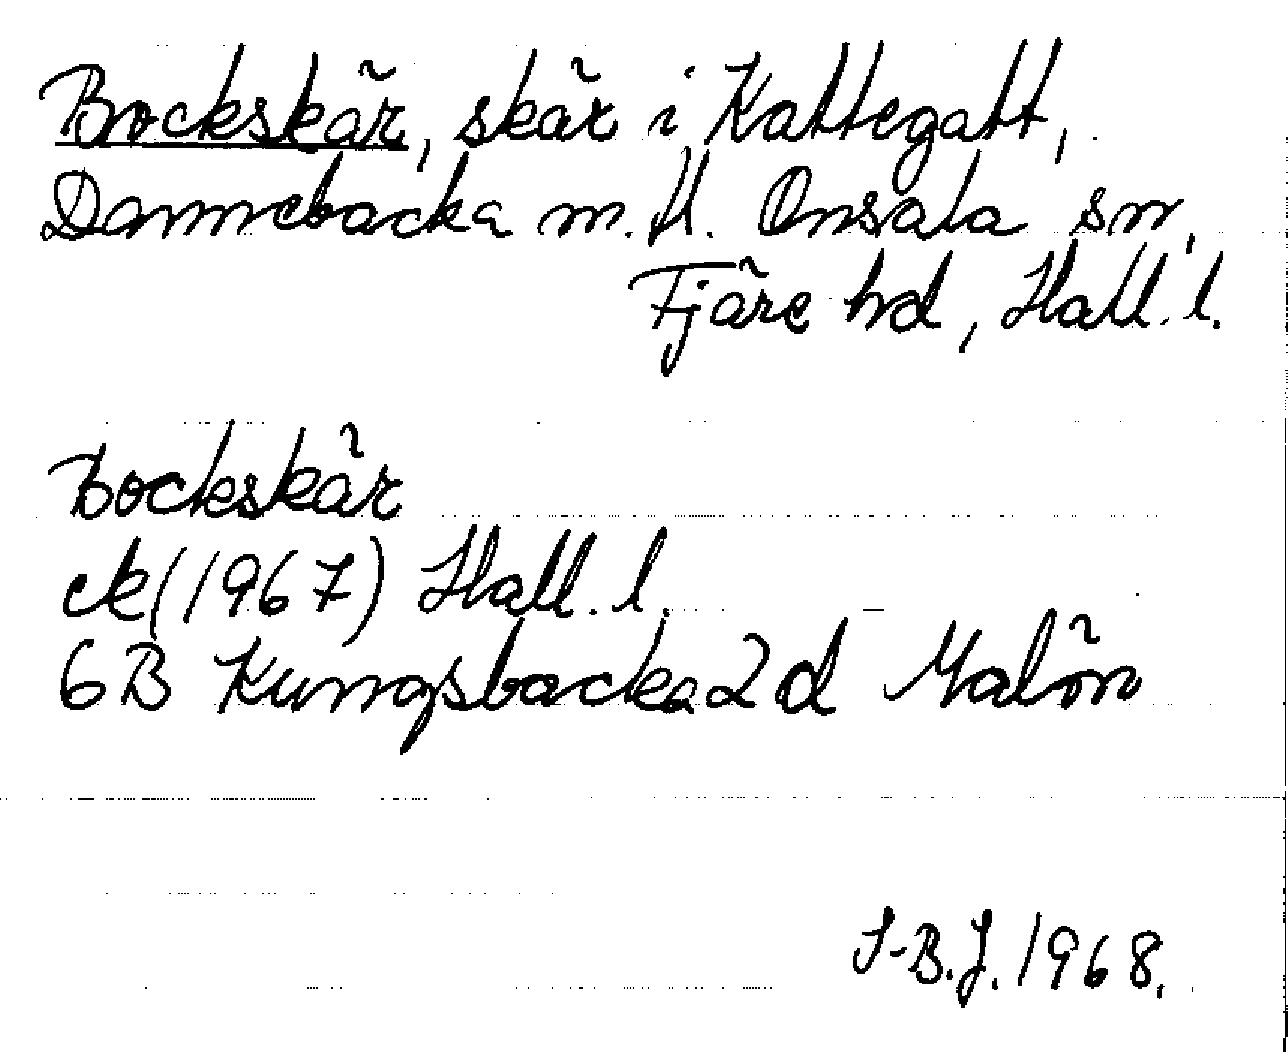 Bockskär, skär i Kattegatt,
Dannebacka m. fl. Onsala sn,
Fjäre hd, Hall. l.
Bockskär
ek (1967) Hall. l.
6B Kungsbacka 2d Malön
S-B.J. 1968.